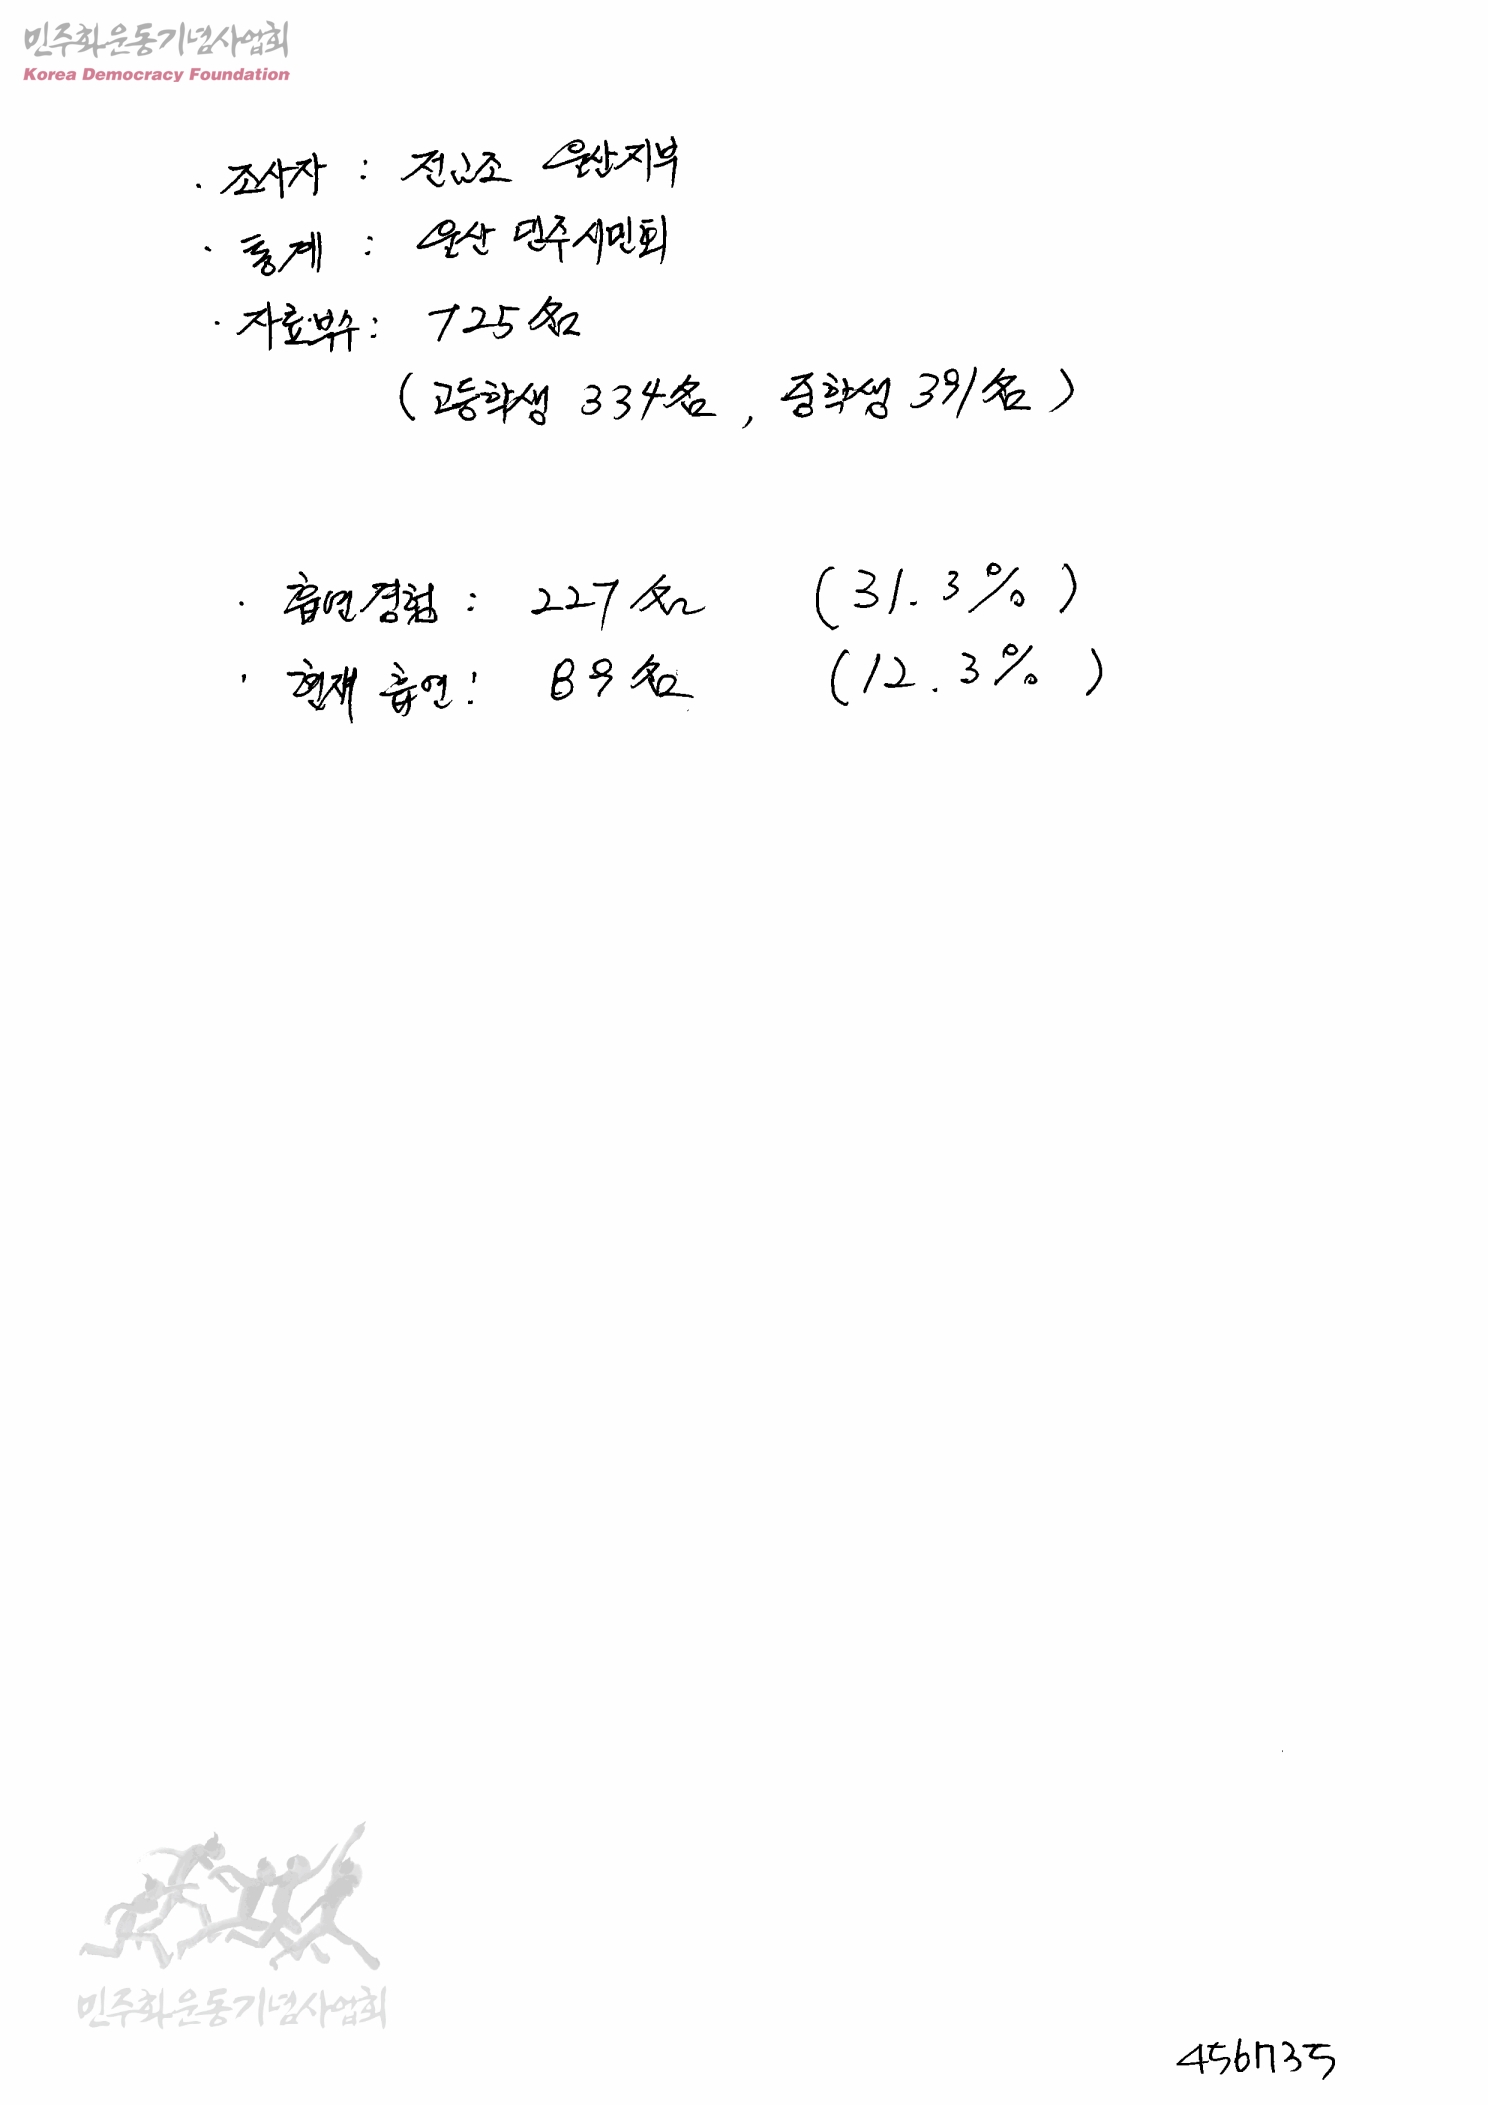 민주화운동기념사업회
Korea Democracy Foundation
· 조사자 : 전교조 울산지부
· 통계 : 울산 민주시민회
· 자료부수 : 725名
(고등학생 334名, 중학생 391名)
· 흡연경험 : 227名 (31.3%)
· 현재 흡연 : 89名 (12.3%)
민주화운동기념사업회
456735